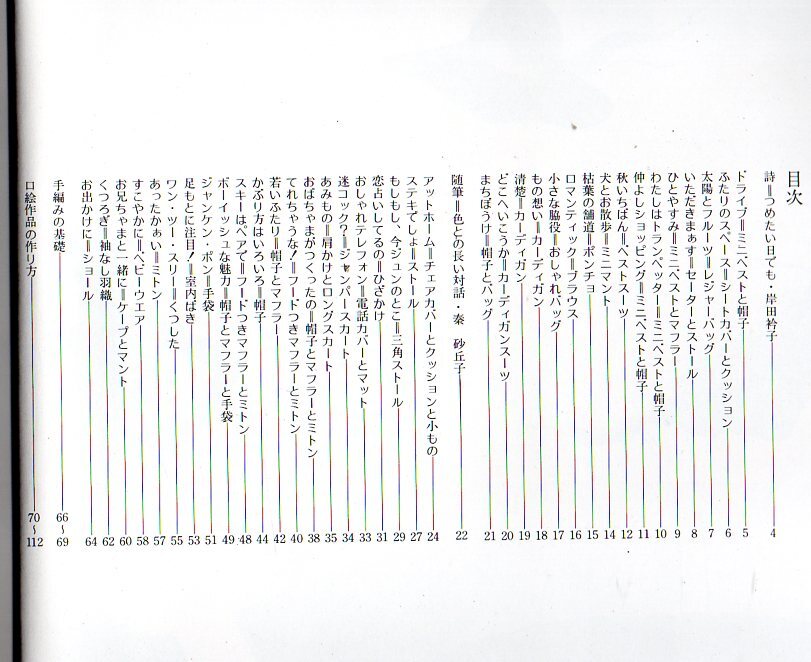 目次
詩＝つめたい日でも・岸田衿子 4
ドライブ＝ミニベストと帽子 5
ふたりのスペース＝シートカバーとクッション 6
太陽とフルーツ＝レジャーバッグ 7
いただきまぁす＝セーターとストール 8
ひとやすみ＝ミニベストとマフラー 9
わたしはトランペッター＝ミニベストと帽子 10
仲よしショッピング＝ミニベストと帽子 11
秋いちばん＝ベストスーツ 12
犬とお散歩＝ミニマント 14
枯葉の舗道＝ポンチョ 15
ロマンティック＝ブラウス 16
小さな脇役＝おしゃれバッグ 17
もの想い＝カーディガン 18
清楚＝カーディガン 19
どこへいこうか＝カーディガンスーツ 20
まちぼうけ＝帽子とバッグ 21
随筆＝色との長い対話・秦　砂丘子 22
アットホーム＝チェアカバーとクッションと小もの 24
ステキでしょ＝ストール 27
もしもし、今ジュンのとこ＝三角ストール 29
恋占いしてるの＝ひざかけ 31
おしゃれテレフォン＝電話カバーとマット 33
迷コック?＝ジャンパースカート 34
あみもの＝肩かけとロングスカート 35
おばちゃまがつくったの＝帽子とマフラーとミトン 38
てれちゃうな!＝フードつきマフラーとミトン 40
若いふたり＝帽子とマフラー 42
かぶり方はいろいろ＝帽子 44
スキーはペアで＝フードつきマフラーとミトン 48
ボーイッシュな魅力＝帽子とマフラーと手袋 49
ジャンケン・ポン＝手袋 51
足もとに注目!＝室内ばき 53
ワン・ツー・スリー＝くつした 55
あったかぁい＝ミトン 57
すこやかに＝ベビーウエア 58
お兄ちゃまと一緒に＝ケープとマント 60
くつろぎ＝袖なし羽織 62
お出かけに＝ショール 64
手編みの基礎 66〜69
口絵作品の作り方 70〜112